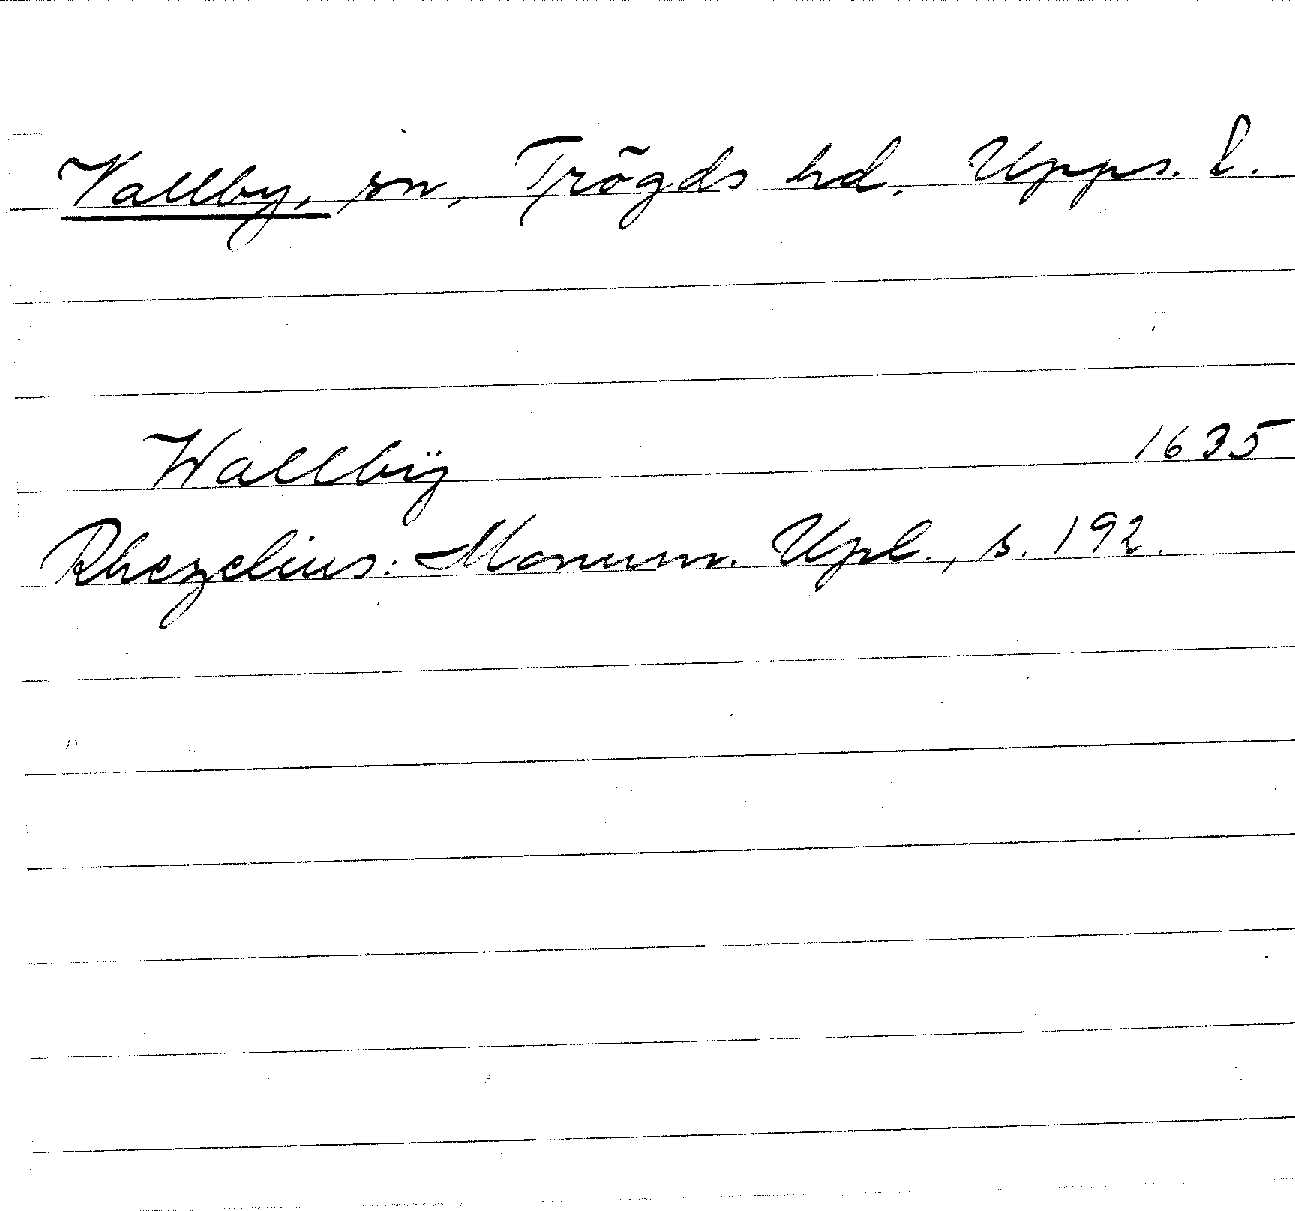 Vallby, sn, Trögds hd. Upps. l.
Wallbÿ 1635
Rhezelius: Monum. Upl., s. 192.